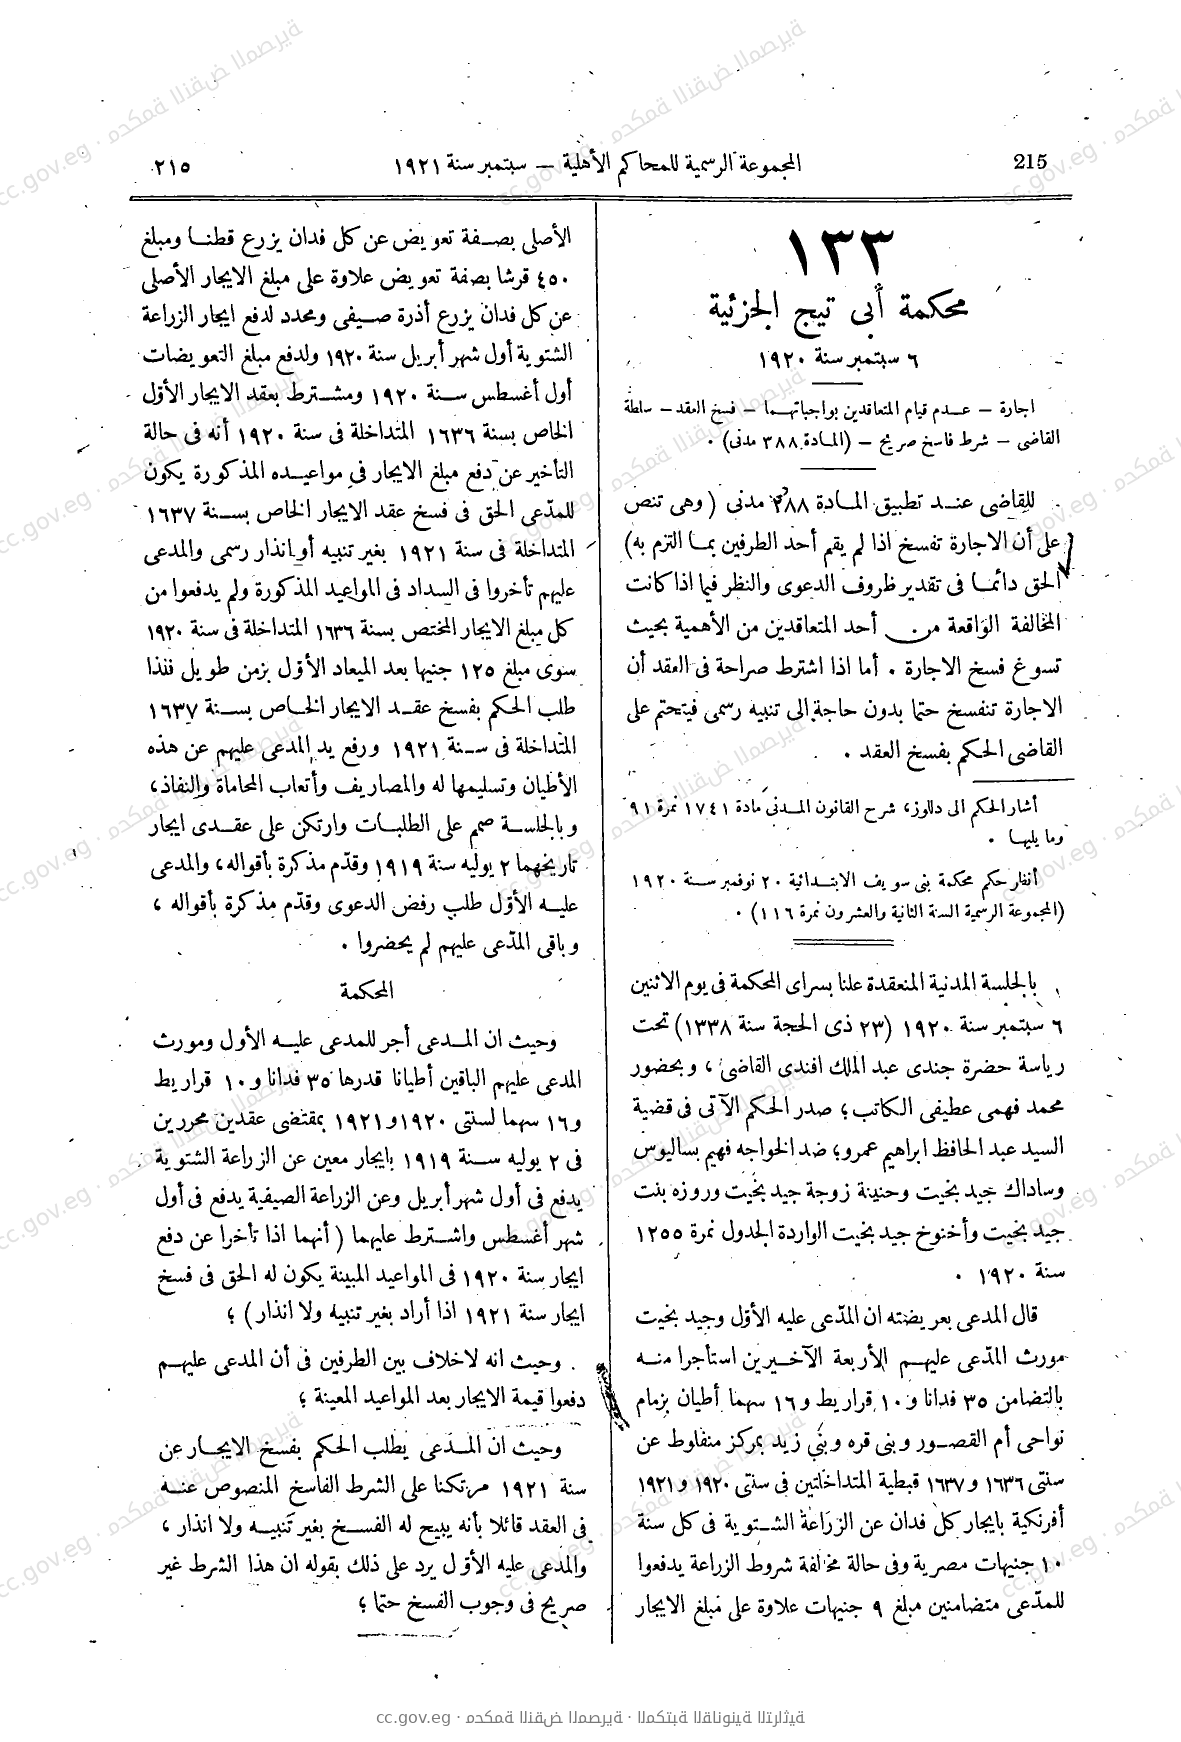 215
المجموعة الرسمية للمحاكم الأهلية — سبتمبر سنة ١٩٢١
٢١٥
١٣٣
محكمة أبى تيج الجزئية
٦ سبتمبر سنة ١٩٢٠
اجارة — عدم قيام المتعاقدين بواجباتهما — فسخ العقد — سلطة
القاضى — شرط فاسخ صريح — (المادة ٣٨٨ مدنى) .
للقاضى عند تطبيق المادة ٣٨٨ مدنى (وهى تنص
على أن الاجارة تفسخ اذا لم يقم أحد الطرفين بما التزم به)
الحق دائما فى تقدير ظروف الدعوى والنظر فيما اذا كانت
المخالفة الواقعة من أحد المتعاقدين من الأهمية بحيث
تسوغ فسخ الاجارة . أما اذا اشترط صراحة فى العقد أن
الاجارة تنفسخ حتما بدون حاجة الى تنبيه رسمى فيتحتم على
القاضى الحكم بفسخ العقد .
أشار الحكم الى دالوز، شرح القانون المدنى مادة ١٧٤١ نمرة ٩١
وما يليها .
أنظر حكم محكمة بنى سويف الابتدائية ٢٠ نوفمبر سنة ١٩٢٠
(المجموعة الرسمية السنة الثانية والعشرون نمرة ١١٦) .
بالجلسة المدنية المنعقدة علنا بسراى المحكمة فى يوم الاثنين
٦ سبتمبر سنة ١٩٢٠ (٢٣ ذى الحجة سنة ١٣٣٨) تحت
رياسة حضرة جندى عبد الملك افندى القاضى ، وبحضور
محمد فهمى عطيفى الكاتب ؛ صدر الحكم الآتى فى قضية
السيد عبد الحافظ ابراهيم عمرو ؛ ضد الخواجه فهيم بساليوس
وساداك جيد بخيت وحنينة زوجة جيد بخيت وروزه بنت
جيد بخيت وأخنوخ جيد بخيت الواردة الجدول نمرة ١٢٥٥
سنة ١٩٢٠ .
قال المدعى بعريضته ان المدّعى عليه الأوّل وجيد بخيت
مورث المدّعى عليهم الأربعة الآخيرين استأجرا منه
بالتضامن ٣٥ فدانا و١٠ قراريط و١٦ سهما أطيان بزمام
نواحى أم القصور وبنى قره وبنى زيد بمركز منفلوط عن
سنتى ١٦٣٦ و١٦٣٧ قبطية المتداخلتين فى سنتى ١٩٢٠ و١٩٢١
أفرنكية بايجار كل فدان عن الزراعة الشتوية فى كل سنة
١٠ جنيهات مصرية وفى حالة مخالفة شروط الزراعة يدفعوا
للمدّعى متضامنين مبلغ ٩ جنيهات علاوة على مبلغ الايجار
الأصلى بصفة تعويض عن كل فدان يزرع قطنا ومبلغ
٤٥٠ قرشا بصفة تعويض علاوة على مبلغ الايجار الأصلى
عن كل فدان يزرع أذرة صيفى ومحدد لدفع ايجار الزراعة
الشتوية أول شهر أبريل سنة ١٩٢٠ ولدفع مبلغ التعويضات
أول أغسطس سنة ١٩٢٠ ومشترط بعقد الايجار الأوّل
الخاص بسنة ١٦٣٦ المتداخلة فى سنة ١٩٢٠ أنه فى حالة
التأخير عن دفع مبلغ الايجار فى مواعيده المذكورة يكون
للمدّعى الحق فى فسخ عقد الايجار الخاص بسنة ١٦٣٧
المتداخلة فى سنة ١٩٢١ بغير تنبيه أو انذار رسمى والمدعى
عليهم تأخروا فى السداد فى المواعيد المذكورة ولم يدفعوا من
كل مبلغ الايجار المختص بسنة ١٦٣٦ المتداخلة فى سنة ١٩٢٠
سوى مبلغ ١٢٥ جنيها بعد الميعاد الأوّل بزمن طويل فلذا
طلب الحكم بفسخ عقد الايجار الخاص بسنة ١٦٣٧
المتداخلة فى سنة ١٩٢١ ورفع يد المدعى عليهم عن هذه
الأطيان وتسليمها له والمصاريف وأتعاب المحاماة والنفاذ ،
وبالجلسة صمم على الطلبات وارتكن على عقدى ايجار
تاريخهما ٢ يوليه سنة ١٩١٩ وقدّم مذكرة بأقواله ، والمدعى
عليه الأوّل طلب رفض الدعوى وقدّم مذكرة بأقواله ،
وباقى المدّعى عليهم لم يحضروا .
المحكمة
وحيث ان المدعى أجر للمدعى عليه الأول ومورث
المدعى عليهم الباقين أطيانا قدرها ٣٥ فدانا و١٠ قراريط
و١٦ سهما لسنتى ١٩٢٠ و١٩٢١ بمقتضى عقدين محررين
فى ٢ يوليه سنة ١٩١٩ بايجار معين عن الزراعة الشتوية
يدفع فى أول شهر أبريل وعن الزراعة الصيفية يدفع فى أول
شهر أغسطس واشترط عليهما (أنهما اذا تأخرا عن دفع
ايجار سنة ١٩٢٠ فى المواعيد المبينة يكون له الحق فى فسخ
ايجار سنة ١٩٢١ اذا أراد بغير تنبيه ولا انذار) ؛
وحيث انه لاخلاف بين الطرفين فى أن المدعى عليهم
دفعوا قيمة الايجار بعد المواعيد المعينة ؛
وحيث ان المدعى يطلب الحكم بفسخ الايجار عن
سنة ١٩٢١ مرتكنا على الشرط الفاسخ المنصوص عنه
فى العقد قائلا بأنه يبيح له الفسخ بغير تنبيه ولا انذار ،
والمدعى عليه الأوّل يرد على ذلك بقوله ان هذا الشرط غير
صريح فى وجوب الفسخ حتما ؛
cc.gov.eg · محكمة النقض المصرية · المكتبة القانونية التراثية